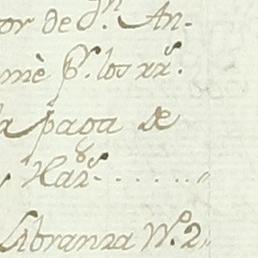 or de Dn. An-
mè pr. los rrs.
a paga de
Libranza No. 2,,